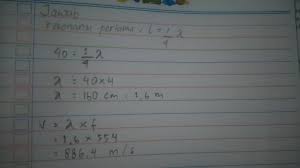 Jawab
Resonansi pertama : L = 1/4 λ
40 = 1/4 λ
λ = 40 x 4
λ = 160 cm = 1,6 m
V = λ x f
= 1,6 x 554
= 886,4 m/s